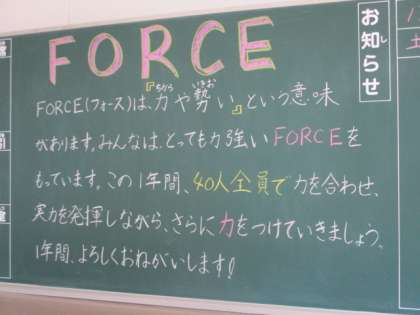 FORCE
お知らせ
FORCE(フォース)は、『力や勢い』という意味
があります。みんなは、とっても力強いFORCEを
もっています。この1年間、40人全員で力を合わせ、
実力を発揮しながら、さらに力をつけていきましょう。
1年間、よろしくおねがいします!